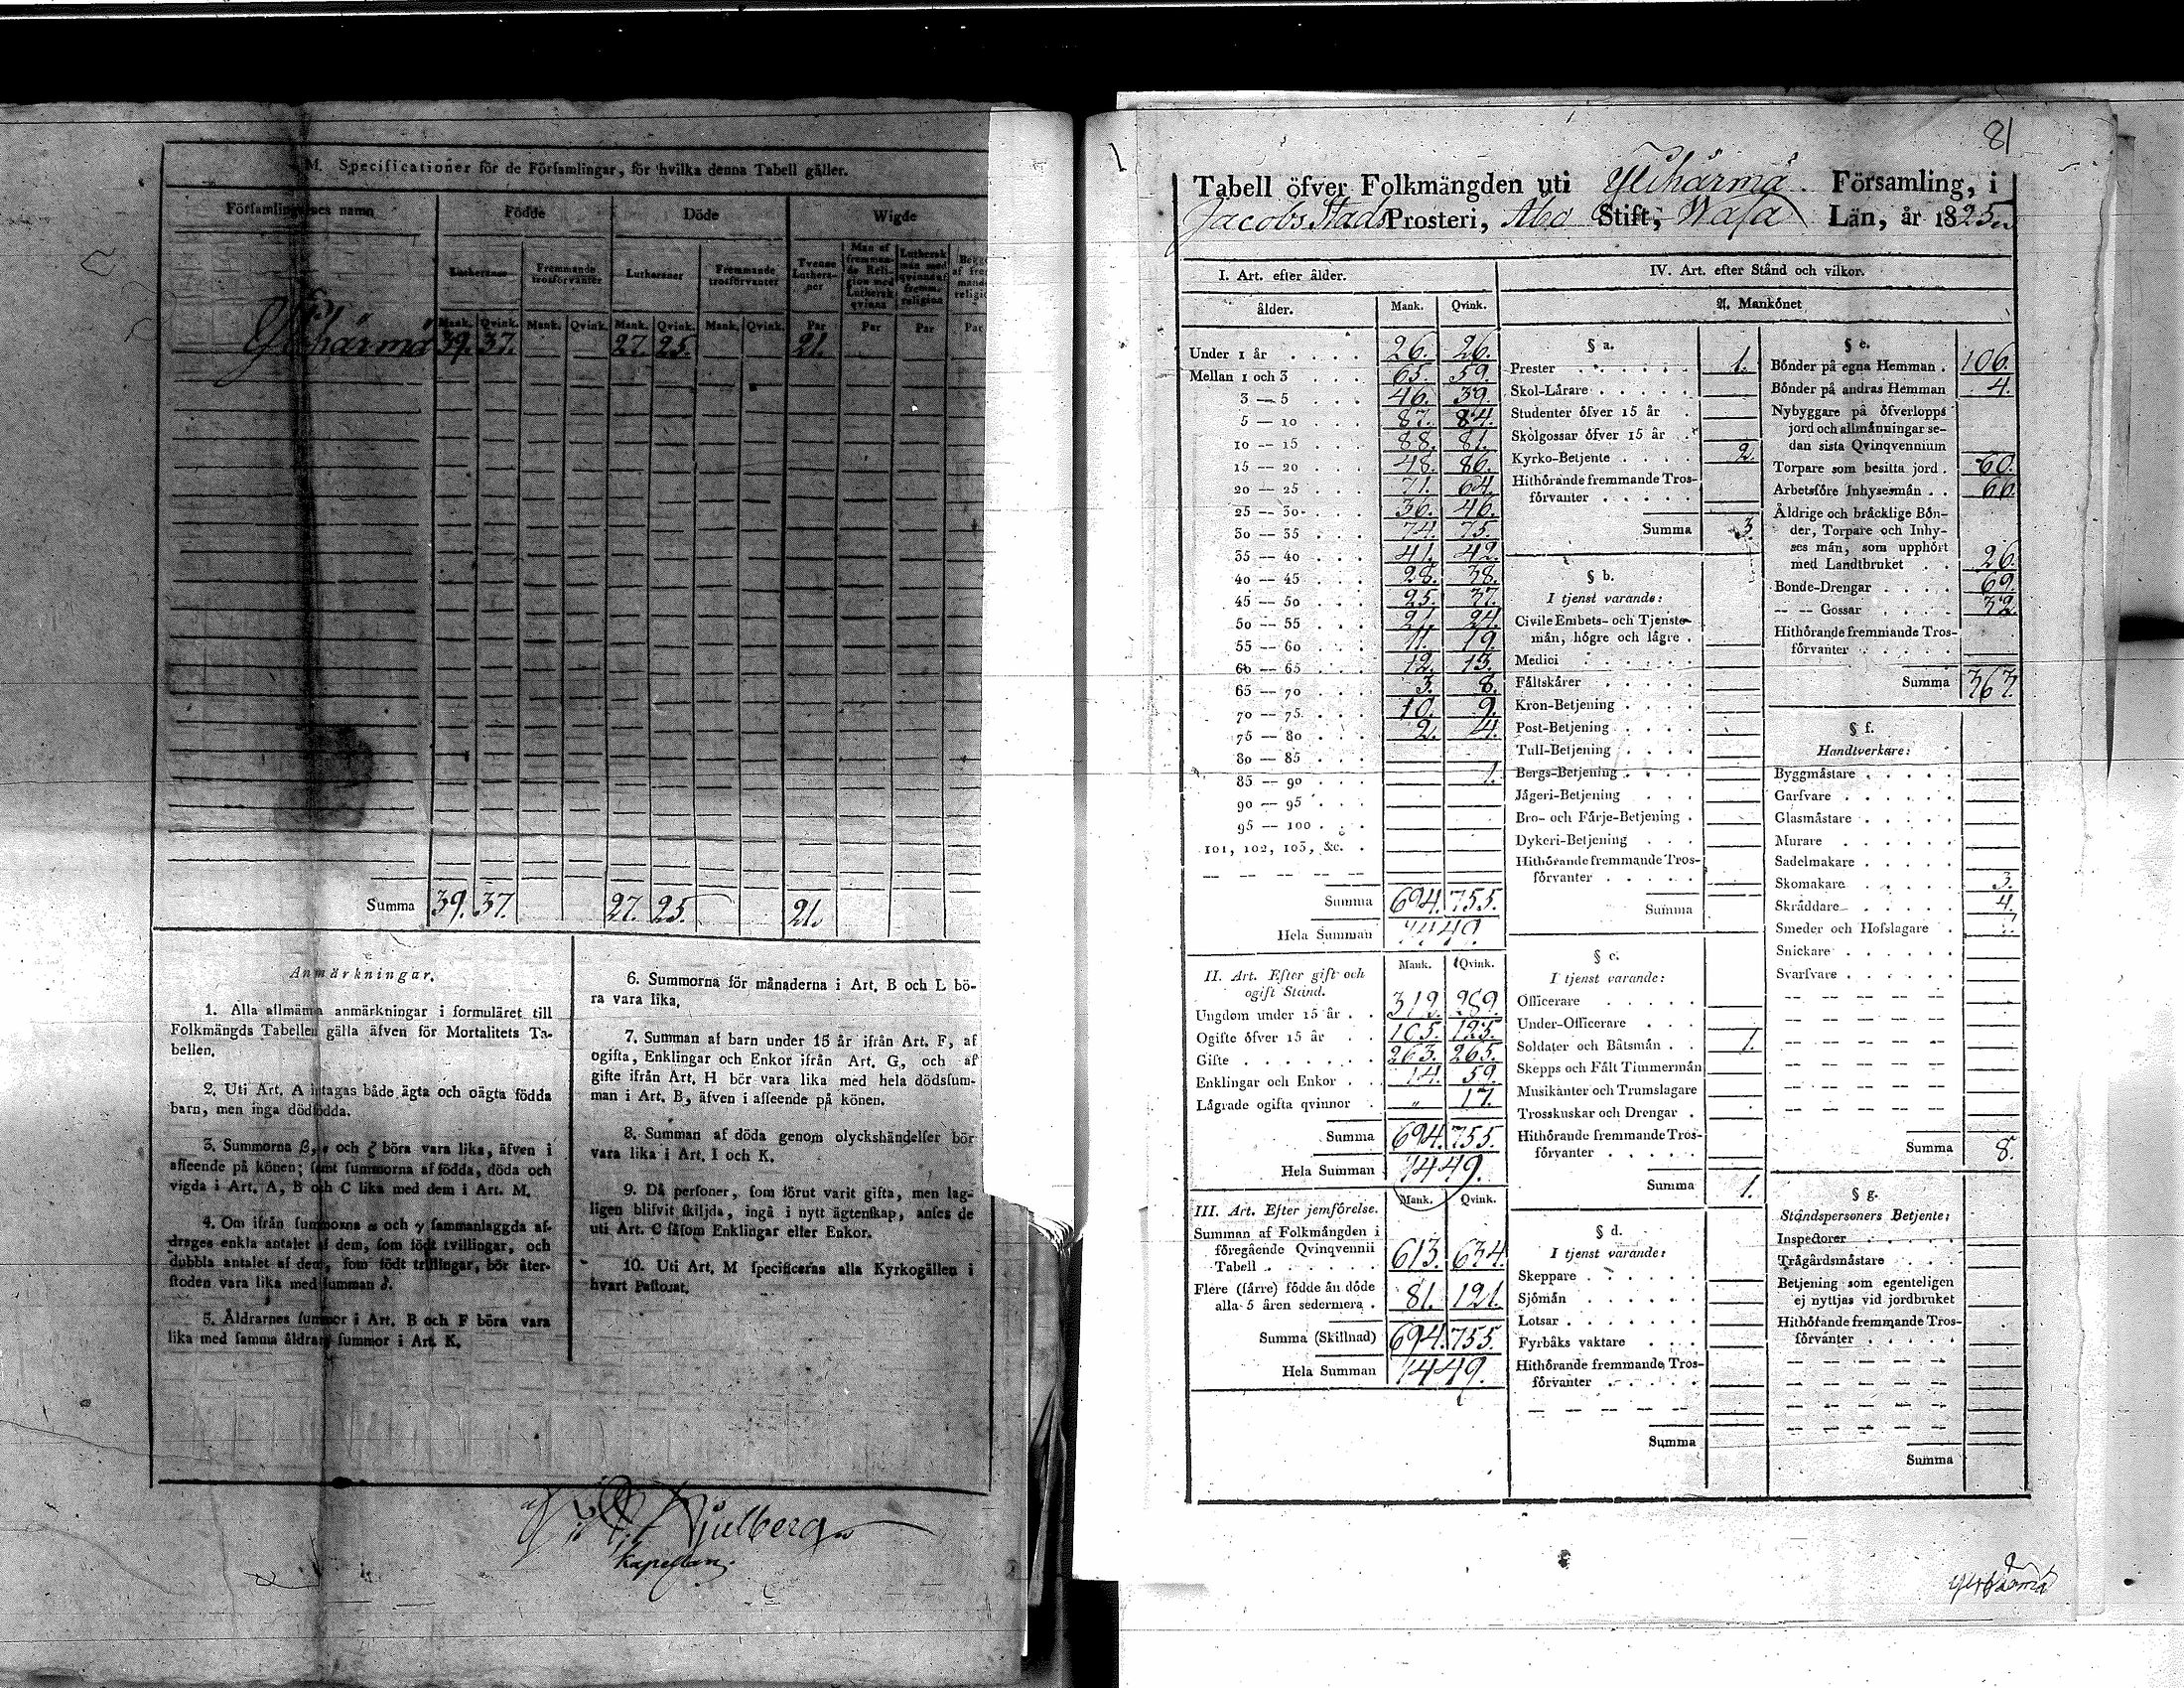 M. Specificationer för de Församlingar, för hvilka denna Tabell gäller.
Församlingarnes namn Födde Döde Wigde
Lutheraner Fremmande trosförvanter Lutheraner Fremmande trosförvanter Tvenne Lutheraner Man af fremmande Religion med Luthersk qvinna Luthersk man med qvinna af fremm. religion
Mank. Qvink. Mank. Qvink. Mank. Qvink. Mank. Qvink. Par Par Par Par
Ylihärmä 39. 37. 27. 25. 21.
Summa 39. 37. 27. 25. 21.
Anmärkningar.
1. Alla allmänna anmärkningar i formuläret till
Folkmängds Tabellen gälla äfven för Mortalitets Ta-
bellen.
2. Uti Art. A intagas både ägta och oägta födda
barn, men inga dödfödda.
3. Summorna β, ε och ζ böra vara lika, äfven i
afseende på könen; samt summorna af födda, döda och
vigda i Art. A, B och C lika med dem i Art. M.
4. Om ifrån summorna α och γ sammanlaggda af-
drages enkla antalet af dem, som födt tvillingar, och
dubbla antalet af dem, som födt trillingar, bör åter-
stoden vara lika med summan δ.
5. Åldrarnes summor i Art. B och F böra vara
lika med samma åldrars summor i Art. K.
6. Summorna för månaderna i Art. B och L bö-
ra vara lika.
7. Summan af barn under 15 år ifrån Art. F, af
ogifta, Enklingar och Enkor ifrån Art. G, och af
gifte ifrån Art. H bör vara lika med hela dödssum-
man i Art. B, äfven i afseende på könen.
8. Summan af döda genom olyckshändelser bör
vara lika i Art. I och K.
9. Då personer, som förut varit gifta, men lag-
ligen blifvit skiljda, ingå i nytt ägtenskap, anses de
uti Art. C såsom Enklingar eller Enkor.
10. Uti Art. M specificeras alla Kyrkogällen i
hvart Pastorat.
Kapellan.
81
Tabell öfver Folkmängden uti Ylihärmä Församling, i
Jacobs Stads Prosteri, Abo Stift, Wasa Län, år 1825.
I. Art. efter ålder.
ålder. Mank. Qvink.
Under 1 år 26. 26.
Mellan 1 och 3 65. 59.
3 — 5 46. 39.
5 — 10 87. 84.
10 — 15 88. 81.
15 — 20 48. 86.
20 — 25 71. 64.
25 — 30 36. 46.
30 — 35 74. 75.
35 — 40 41. 42.
40 — 45 28. 38.
45 — 50 25. 37.
50 — 55 21. 24.
55 — 60 11. 19.
60 — 65 12. 13.
65 — 70 3. 8.
70 — 75 10. 9.
75 — 80 2. 4.
80 — 85
85 — 90 1.
90 — 95
95 — 100
101, 102, 103, &c.
Summa 694. 755.
Hela Summan 1449.
II. Art. Efter gift och
ogift Stånd.
Mank. Qvink.
Ungdom under 15 år 312. 289.
Ogifte öfver 15 år 105. 125.
Gifte 263. 265.
Enklingar och Enkor 14. 59.
Lägrade ogifta qvinnor „ 17.
Summa 694. 755.
Hela Summan 1449.
III. Art. Efter jemförelse. Mank. Qvink.
Summan af Folkmängden i
föregående Qvinqvennii
Tabell 613. 634.
Flere (färre) födde än döde
alla 5 åren sedermera 81. 121.
Summa (Skillnad) 694. 755.
Hela Summan 1449.
IV. Art. efter Stånd och vilkor.
A. Mankönet
§ a.
Prester 1.
Skol-Lärare
Studenter öfver 15 år
Skolgossar öfver 15 år
Kyrko-Betjente 2.
Hithörande fremmande Tros-
förvanter
Summa 3.
§ b.
I tjenst varande:
Civile Embets- och Tjenste-
män, högre och lägre
Medici
Fältskärer
Kron-Betjening
Post-Betjening
Tull-Betjening
Bergs-Betjening
Jägeri-Betjening
Bro- och Färje-Betjening
Dykeri-Betjening
Hithörande fremmande Tros-
förvanter
Summa
§ c.
I tjenst varande:
Officerare
Under-Officerare
Soldater och Båtsmän 1.
Skepps och Fält Timmermän
Musikanter och Trumslagare
Trosskuskar och Drengar
Hithörande fremmande Tros-
förvanter
Summa 1.
§ d.
I tjenst varande:
Skeppare
Sjömän
Lotsar
Fyrbåks vaktare
Hithörande fremmande Tros-
förvanter
Summa
§ e.
Bönder på egna Hemman 106.
Bönder på andras Hemman 4.
Nybyggare på öfverlopps
jord och allmänningar se-
dan sista Qvinqvennium
Torpare som besitta jord 60.
Arbetsföre Inhysesmän 66.
Åldrige och bräcklige Bön-
der, Torpare och Inhy-
ses män, som upphört
med Landtbruket 26.
Bonde-Drengar 69.
— — Gossar 32.
Hithörande fremmande Tros-
förvanter
Summa 363.
§ f.
Handtverkare:
Byggmästare
Garfvare
Glasmästare
Murare
Sadelmakare
Skomakare 3.
Skräddare 4.
Smeder och Hofslagare 1.
Snickare
Svarfvare
Summa 8.
§ g.
Ståndspersoners Betjente:
Inspectorer
Trägårdsmästare
Betjening som egenteligen
ej nyttjas vid jordbruket
Hithörande fremmande Tros-
förvanter
Summa
Ylihärmä